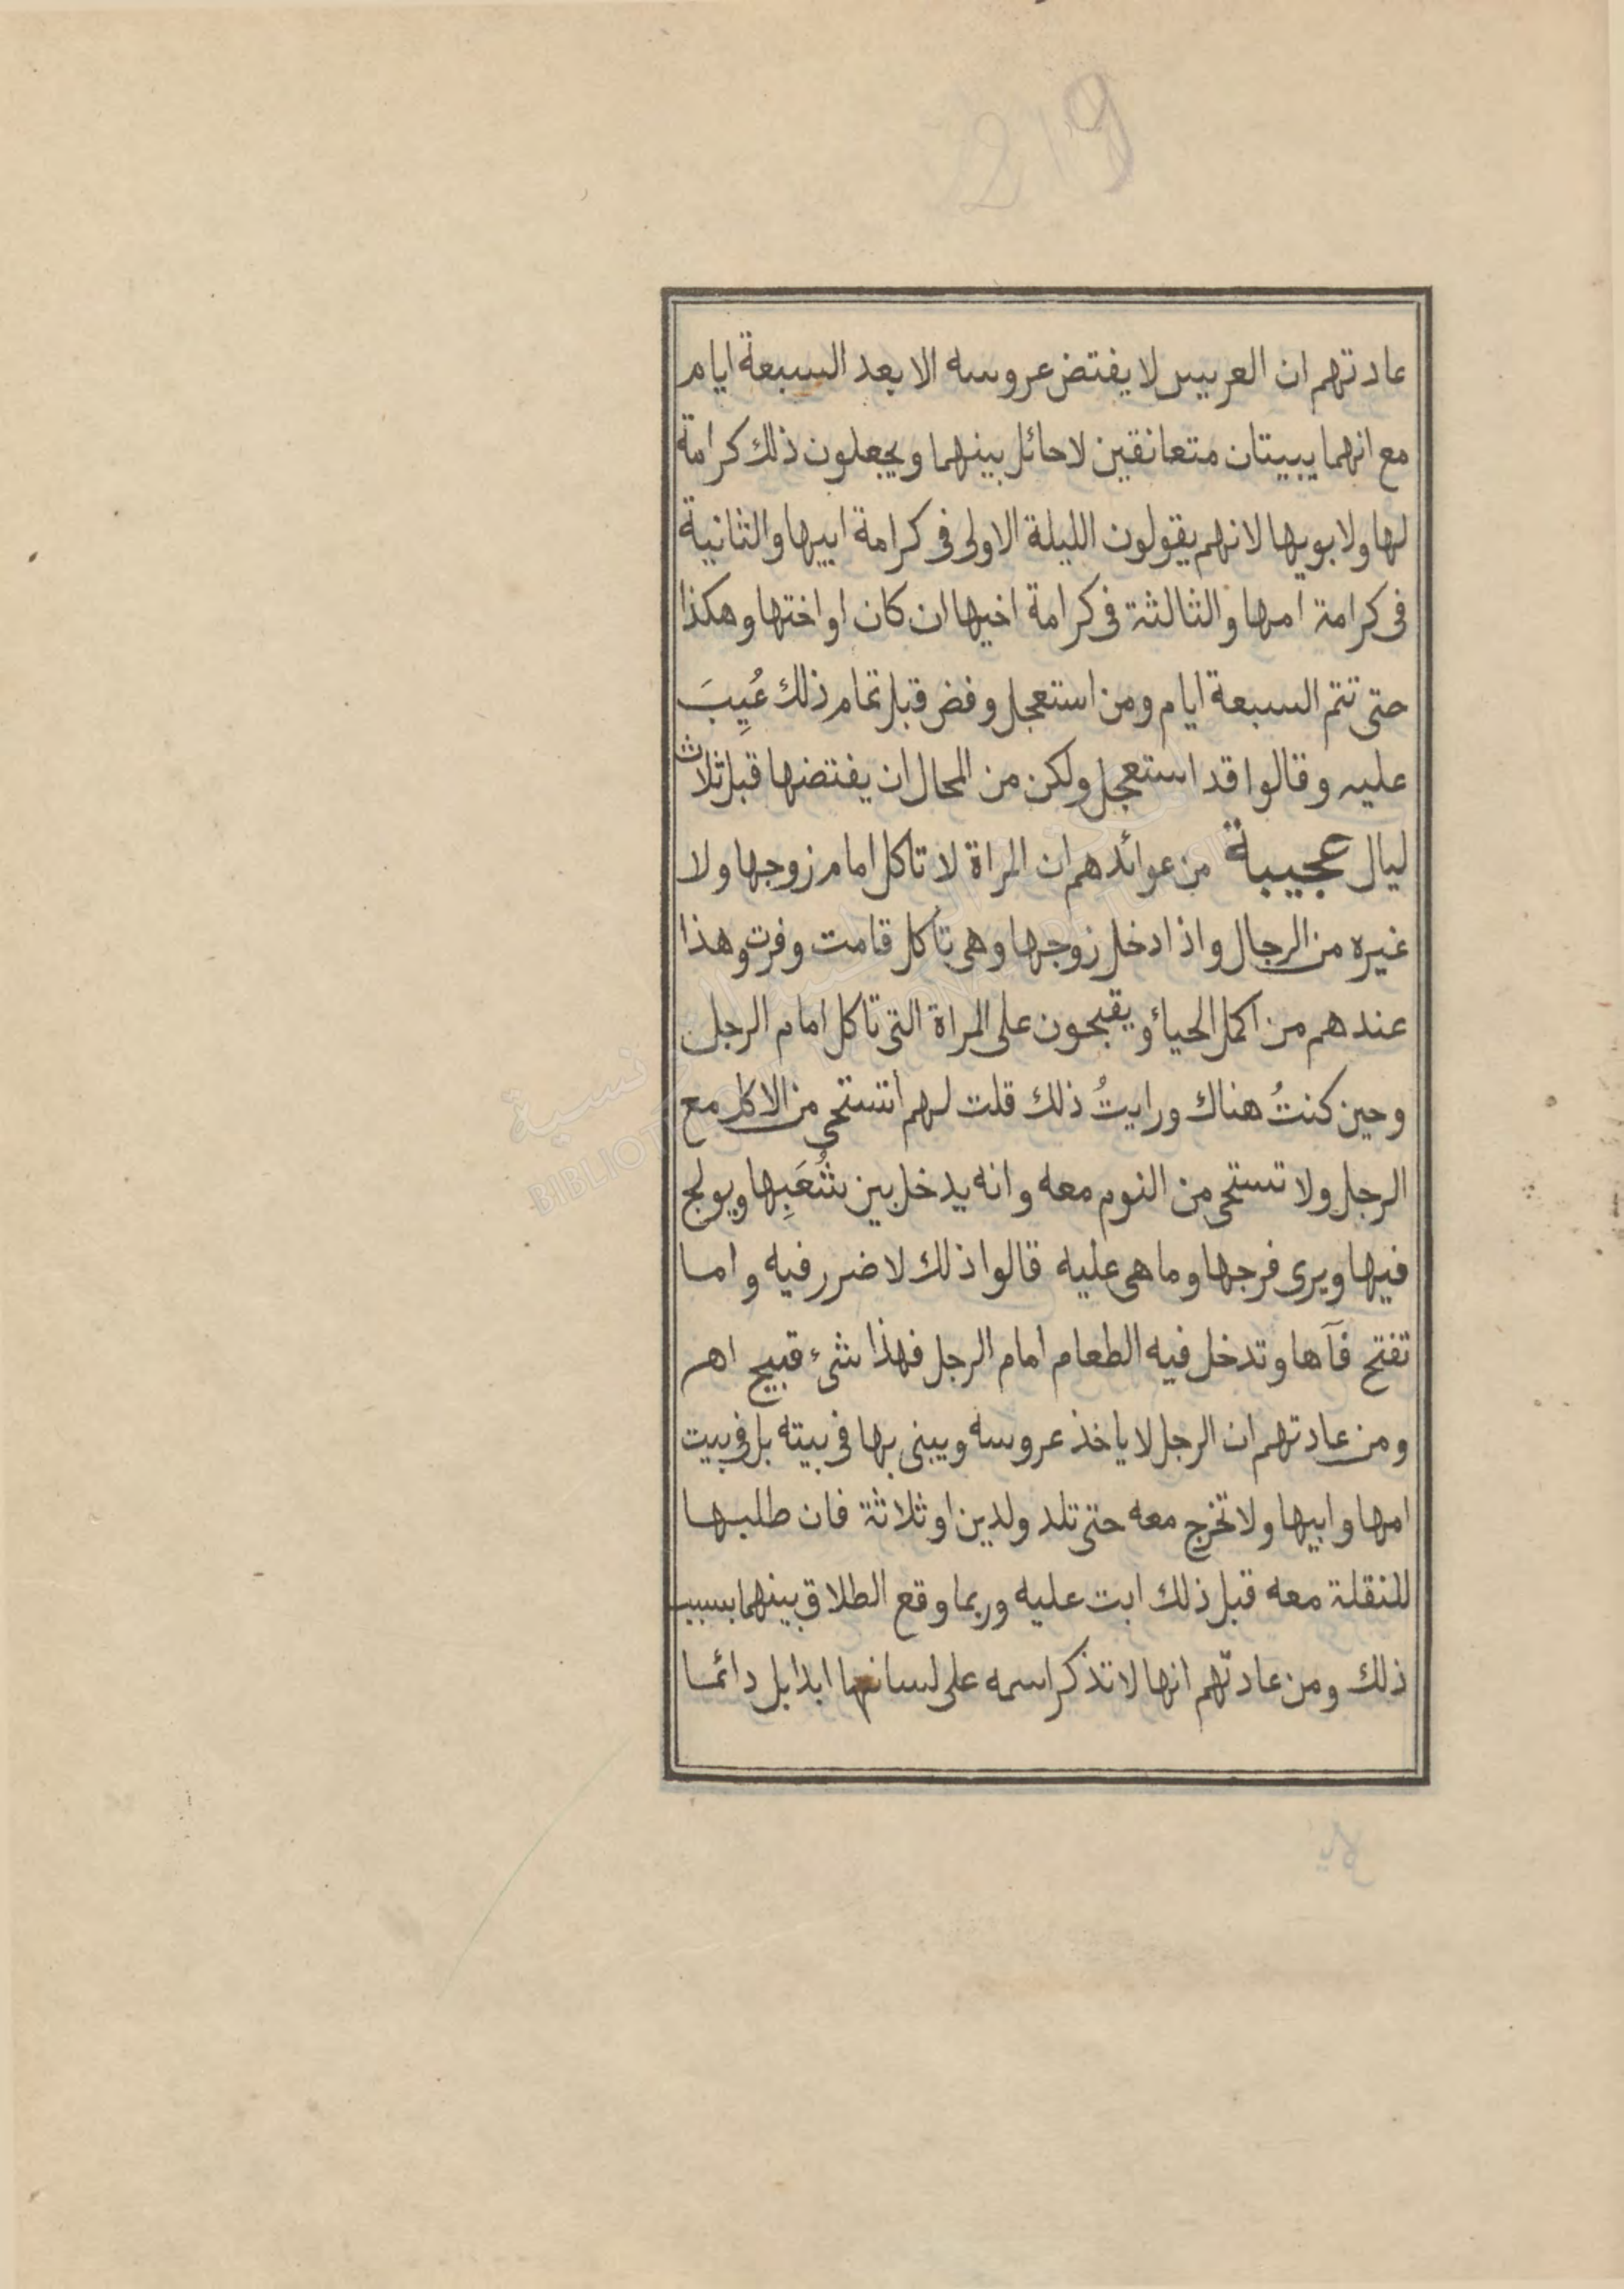 219
عادتهم ان العريس لا يفتض عروسه الا بعد السبعة ايام
مع انهما يبيتان متعانقين لا حائل بينهما ويجعلون ذلك كرامة
لها ولابويها لانهم يقولون الليلة الاولى فى كرامة ابيها والثانية
فى كرامة امها والثالثة فى كرامة اخيها ان كان او اختها وهكذا
حتى تتم السبعة ايام ومن استعجل وفض قبل تمام ذلك عُيِبَ
عليه وقالوا قد استعجل ولكن من المحال ان يفتضها قبل ثلاث
ليال عجيبة من عوائدهم ان المراة لا تاكل امام زوجها ولا
غيره من الرجال واذا دخل زوجها وهى تاكل قامت وفرت وهذا
عندهم من اكمل الحياء ويقبحون على المراة التى تاكل امام الرجل
وحين كنتُ هناك ورايتُ ذلك قلت لهم أتستحى من الاكل مع
الرجل ولا تستحى من النوم معه وانه يدخل بين شُعَبِها ويولج
فيها ويرى فرجها وما هى عليه قالوا ذلك لا ضرر فيه واما
تفتح فآها وتدخل فيه الطعام امام الرجل فهذا شىء قبيح اهـ
ومن عادتهم ان الرجل لا ياخذ عروسه ويبنى بها فى بيته بل فى بيت
امها وابيها ولا تخرج معه حتى تلد ولدين او ثلاثة فان طلبها
للنقلة معه قبل ذلك ابت عليه وربما وقع الطلاق بينهما بسبب
ذلك ومن عادتهم انها لا تذكر اسمه على لسانها ابدا بل دائما